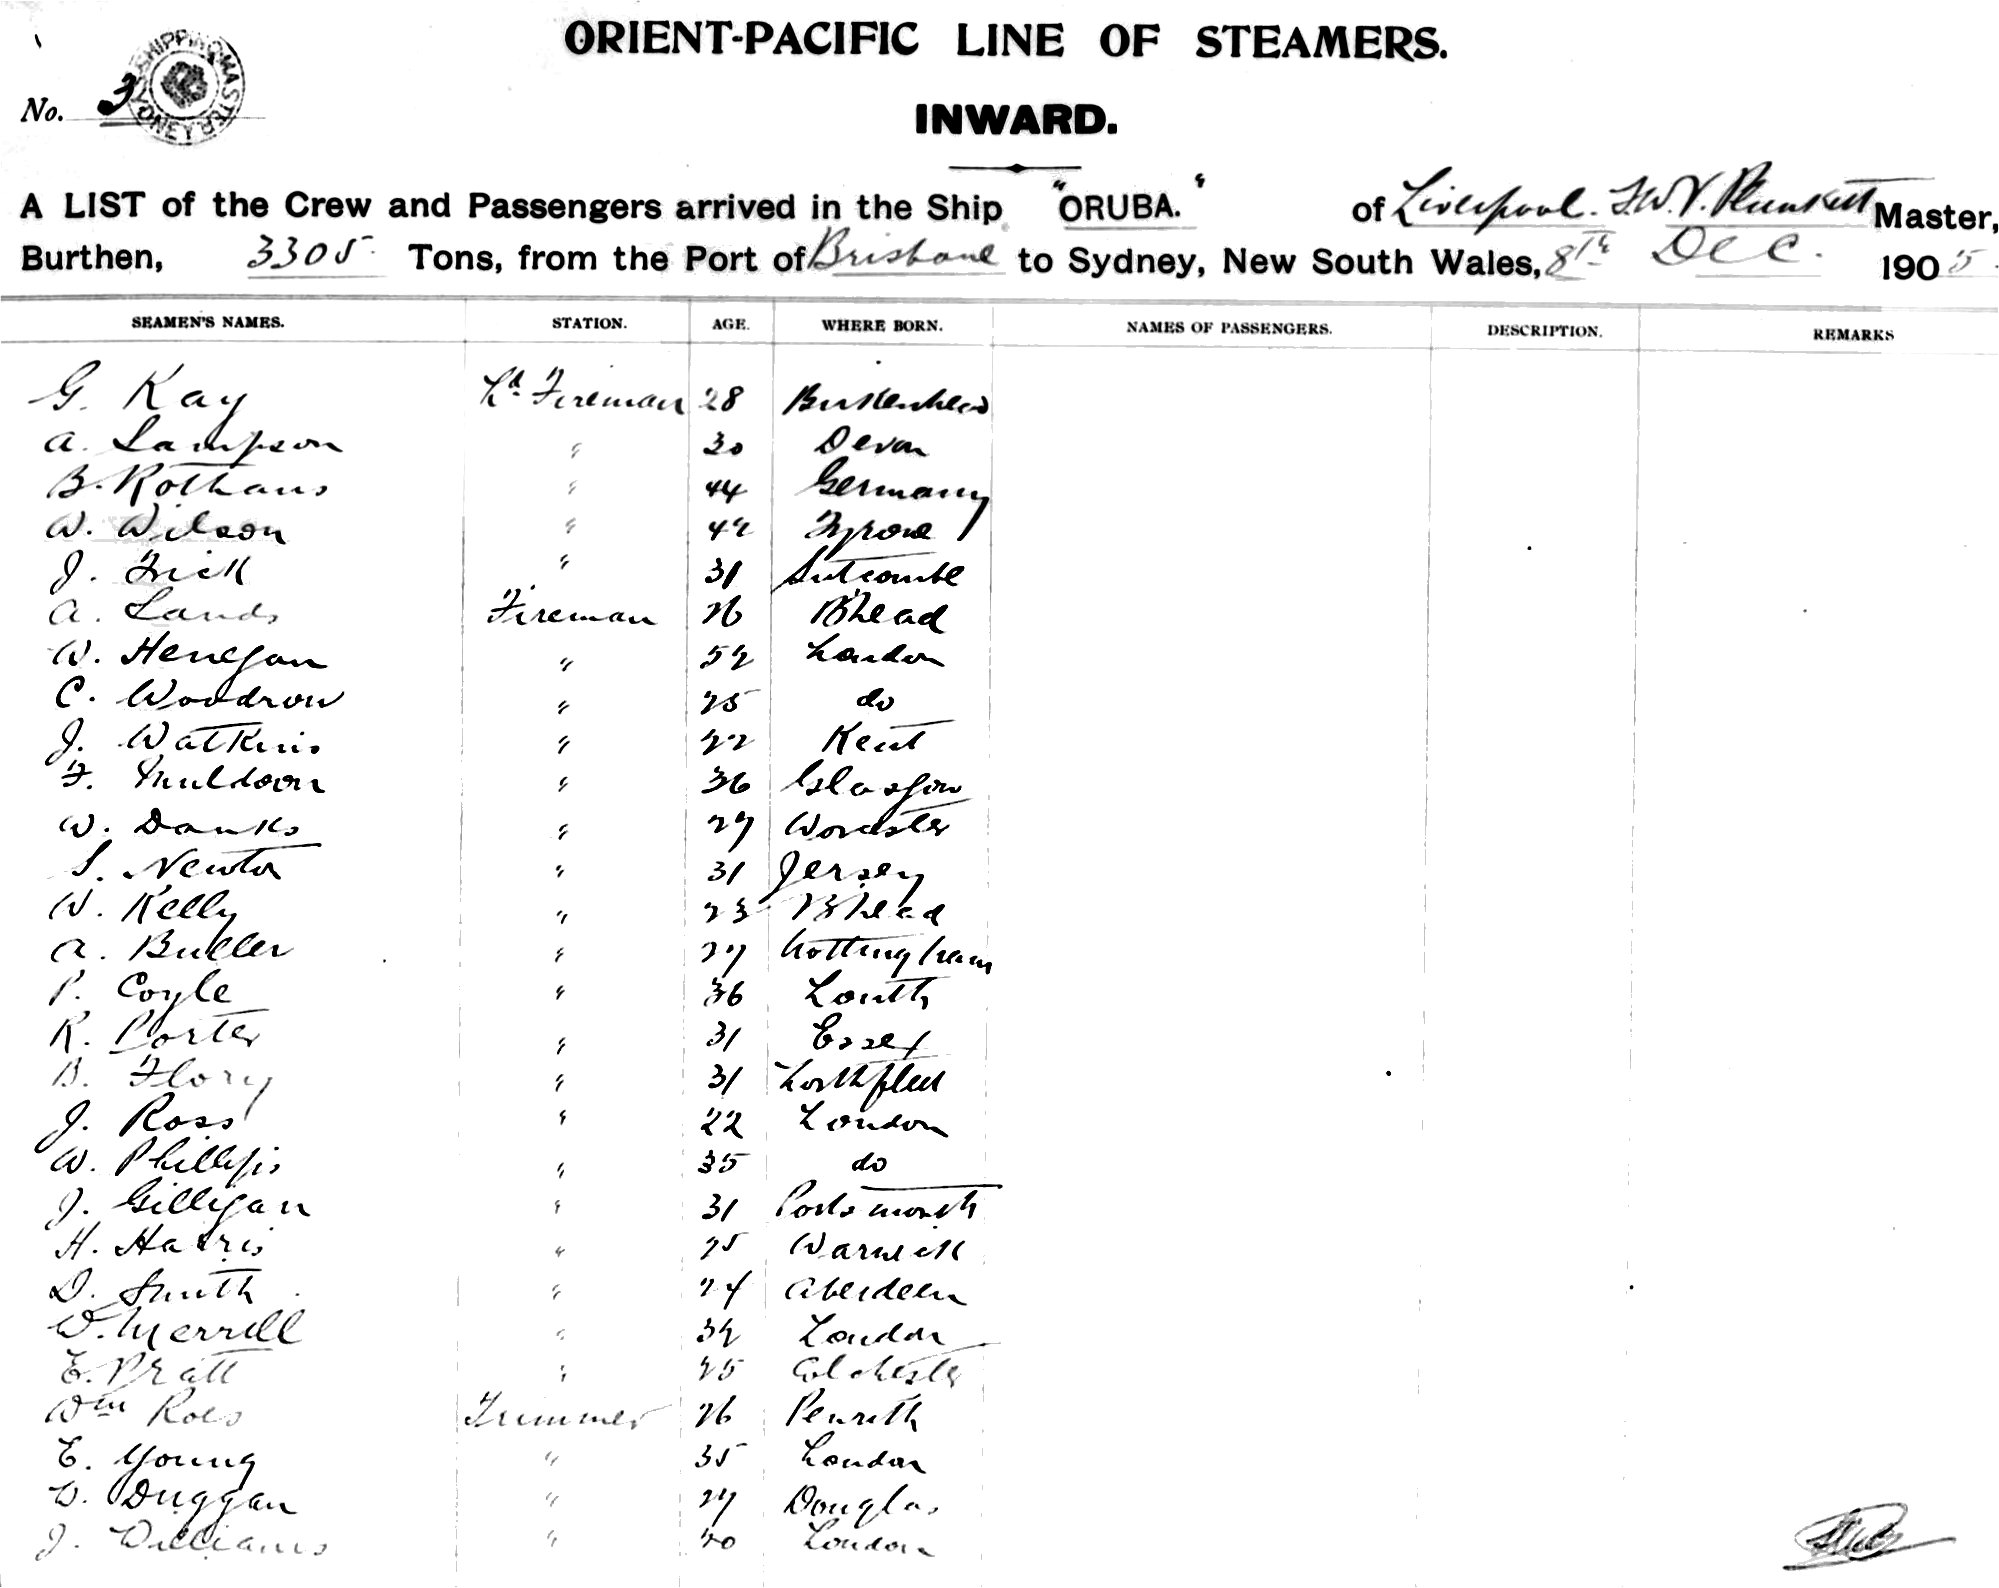 ORIENT-PACIFIC LINE OF STEAMERS.
No. 3
SHIPPING MASTER SYDNEY
INWARD.
A LIST of the Crew and Passengers arrived in the Ship "ORUBA." of Liverpool. F.W.V. Plunkett Master,
Burthen, 3305 Tons, from the Port of Brisbane to Sydney, New South Wales, 8th Dec. 1905
SEAMEN'S NAMES. STATION. AGE. WHERE BORN. NAMES OF PASSENGERS. DESCRIPTION. REMARKS
G. Kay Ld. Fireman 28 Birkenhead
A. Lampson " 30 Devon
B. Rothaus " 44 Germany
W. Wilson " 42 Tyrone
J. Frick " 31 Sutcombe
A. Lands Fireman 26 B'head
W. Henegan " 52 London
C. Woodrow " 25 do
J. Watkins " 22 Kent
F. Muldoon " 36 Glasgow
W. Danks " 27 Worcester
S. Newton " 31 Jersey
W. Kelly " 23 B'head
A. Buller " 27 Nottingham
P. Coyle " 36 Louth
R. Porter " 31 Essex
B. Flory " 31 Northfleet
J. Ross " 22 London
W. Phillips " 35 do
J. Gilligan " 31 Portsmouth
H. Harris " 25 Warwick
D. Smith " 24 Aberdeen
W. Merrill " 32 London
E. Pratt " 25 Colchester
Wm Roes Trimmer 26 Penrith
E. Young " 35 London
Duggan " 27 Douglas
J. Williams " 20 London